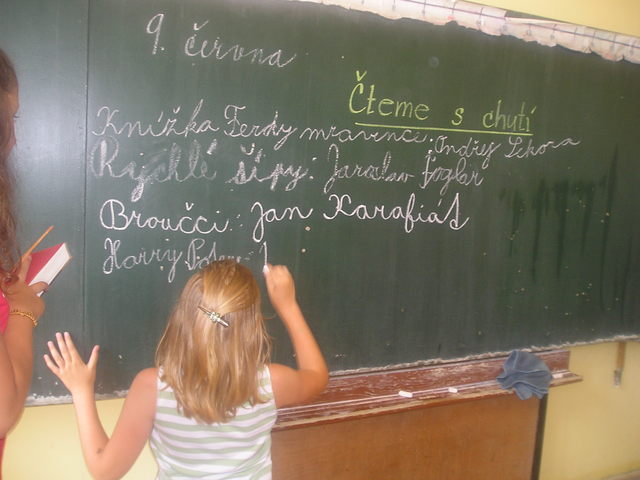 9. června
Čteme s chutí
Knížka Ferdy mravence: Ondřej Sekora
Rychlé šípy: Jaroslav Foglar
Broučci: Jan Karafiát
Harry Potter: J